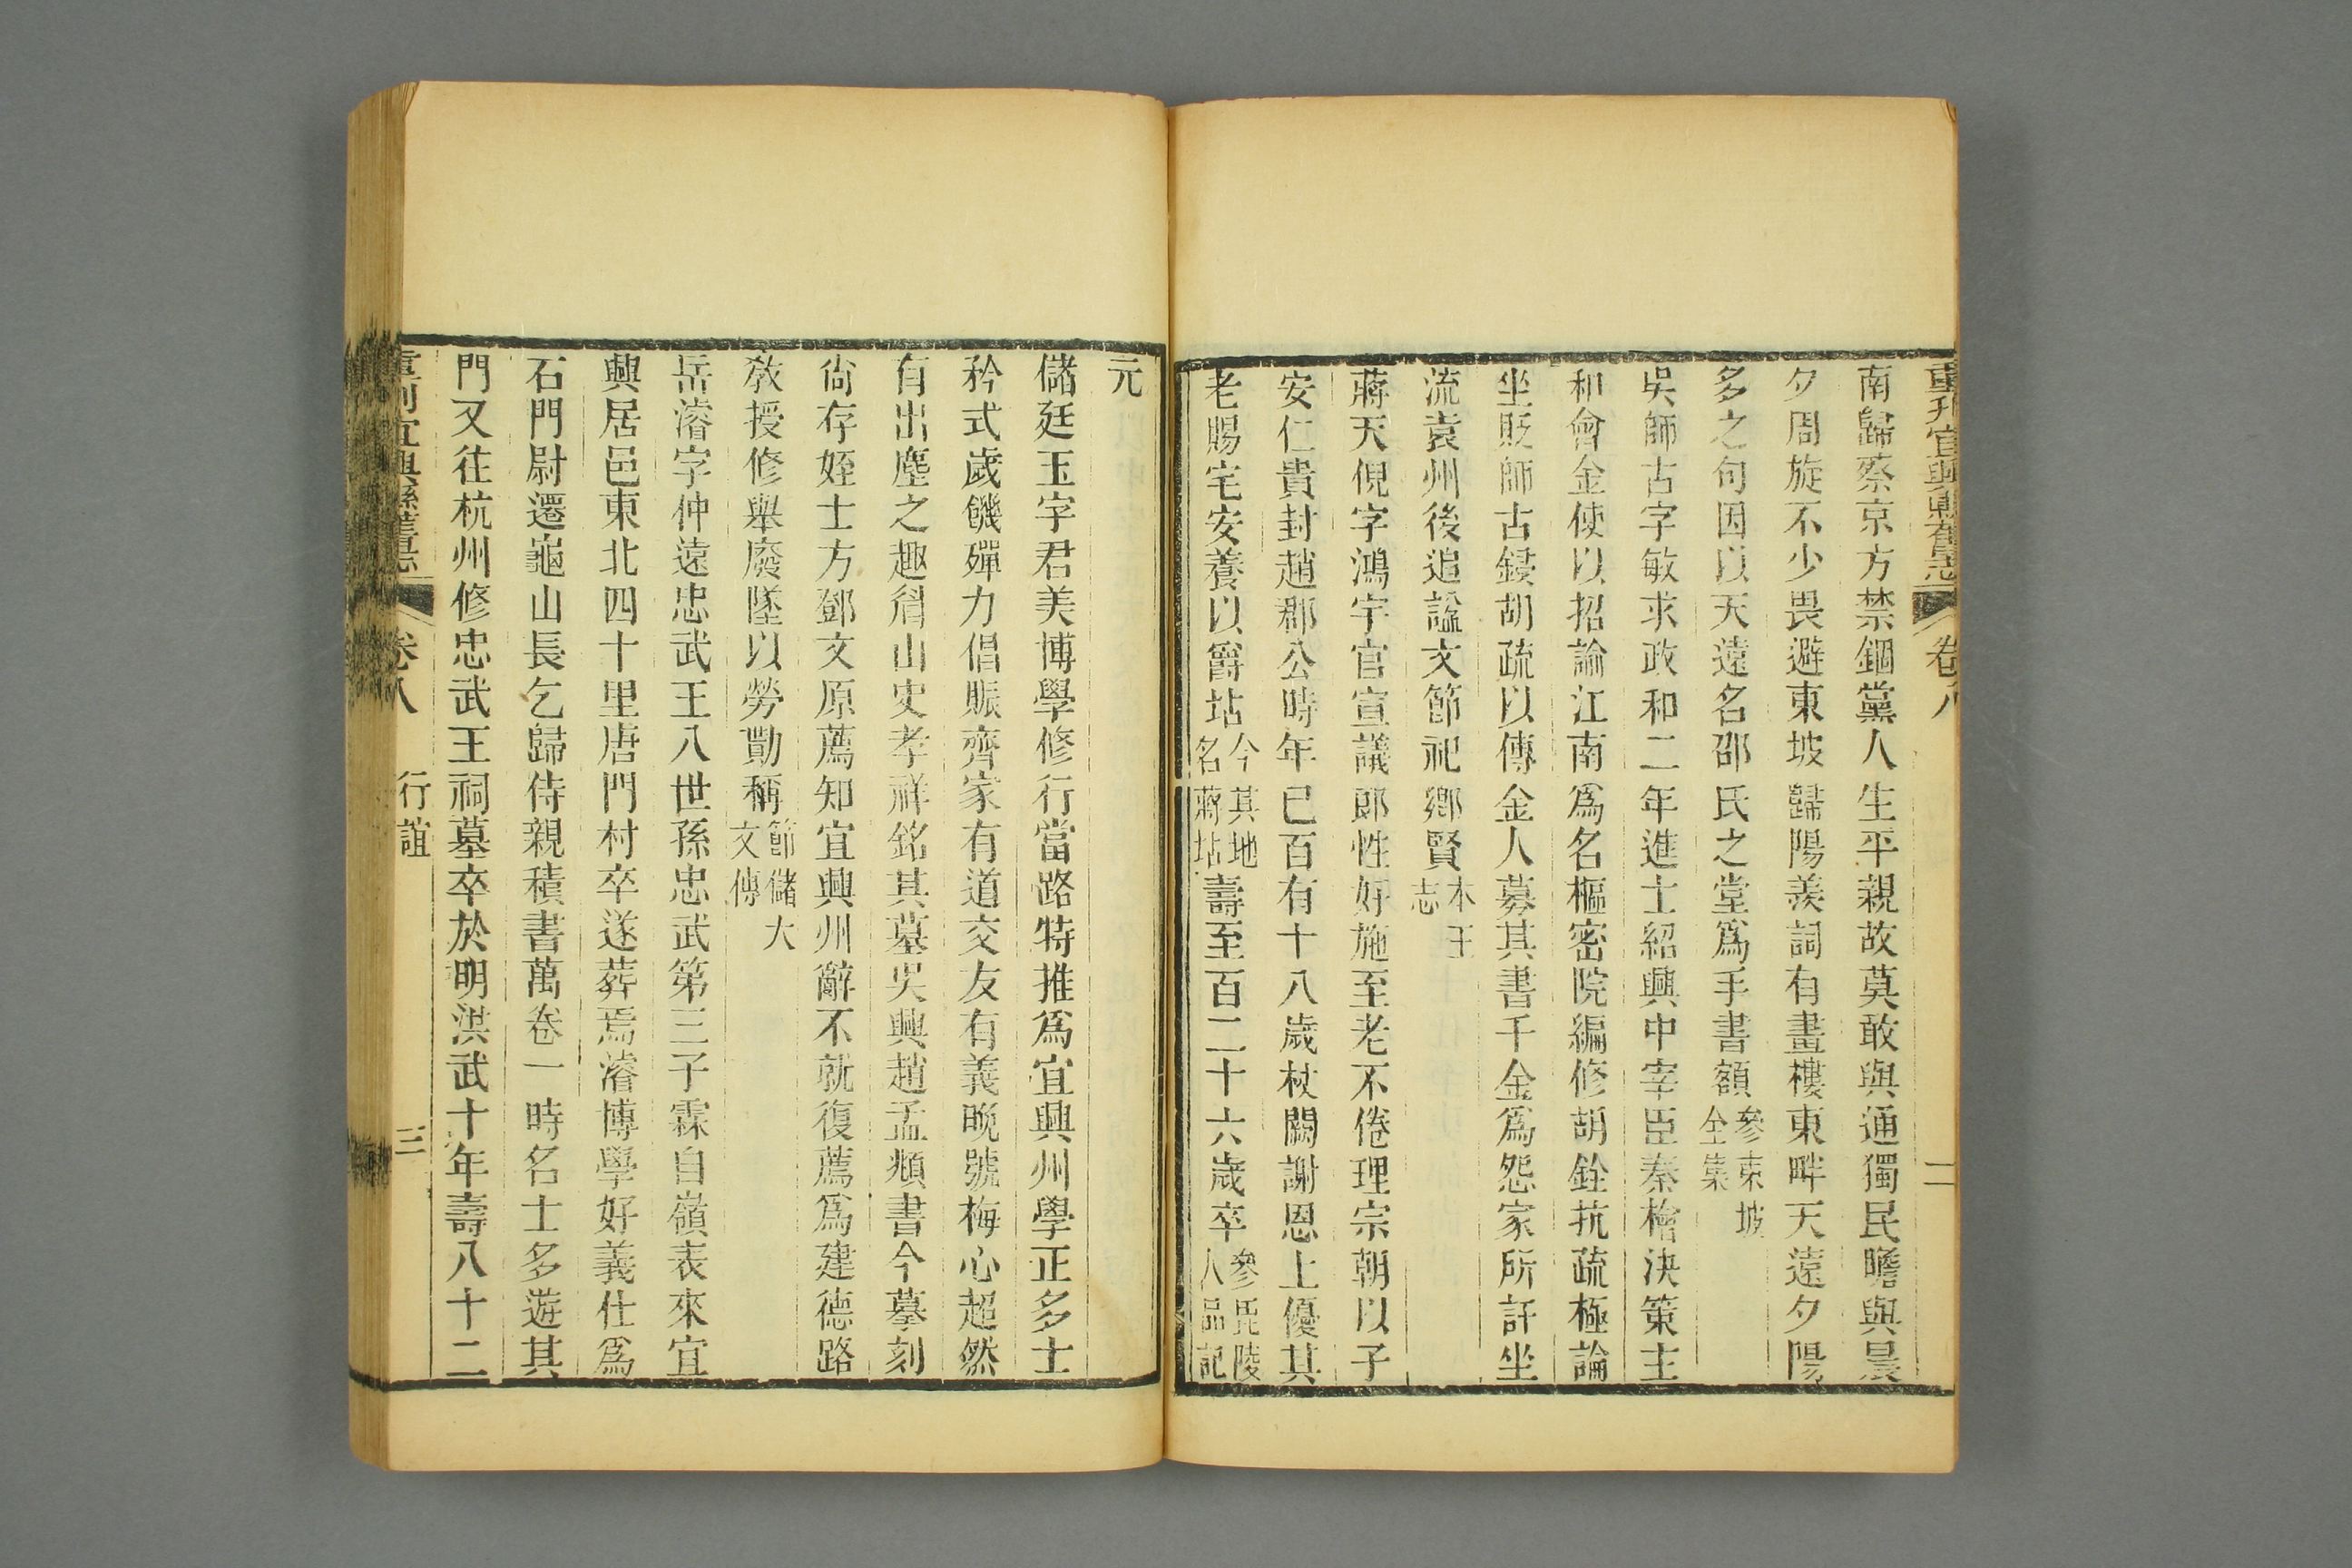 重刋宜興縣舊志 卷八 二
南歸蔡京方禁錮黨人生平親故莫敢與通獨民瞻與晨
夕周旋不少畏避東坡歸陽羨詞有畫樓東畔天遠夕陽
多之句因以天遠名邵氏之堂爲手書額參東坡全集
吳師古字敏求政和二年進士紹興中宰臣秦檜決策主
和會金使以招諭江南爲名樞密院編修胡銓抗疏極論
坐貶師古鋟胡疏以傳金人募其書千金爲怨家所訐坐
流袁州後追謚文節祀鄉賢本王志
蔣天倪字鴻宇官宣議郎性好施至老不倦理宗朝以子
安仁貴封趙郡公時年已百有十八歲杖闕謝恩上優其
老賜宅安養以爵坫今其地名蔣坫壽至百二十六歲卒參毘陵人品記
元
儲廷玉字君美博學修行當路特推爲宜興州學正多士
矜式歲饑殫力倡賑齊家有道交友有義晚號梅心超然
有出塵之趣眉山史孝祥銘其墓吳興趙孟頫書今摹刻
尙存姪士方鄧文原薦知宜興州辭不就復薦爲建德路
敎授修舉廢墜以勞勩稱節儲大文傳
岳濬字仲遠忠武王八世孫忠武第三子霖自嶺表來宜
興居邑東北四十里唐門村卒遂葬焉濬博學好義仕爲
石門尉遷龜山長乞歸侍親積書萬卷一時名士多遊其
門又往杭州修忠武王祠墓卒於明洪武十年壽八十二
重刋宜興縣舊志 卷八 行誼 三